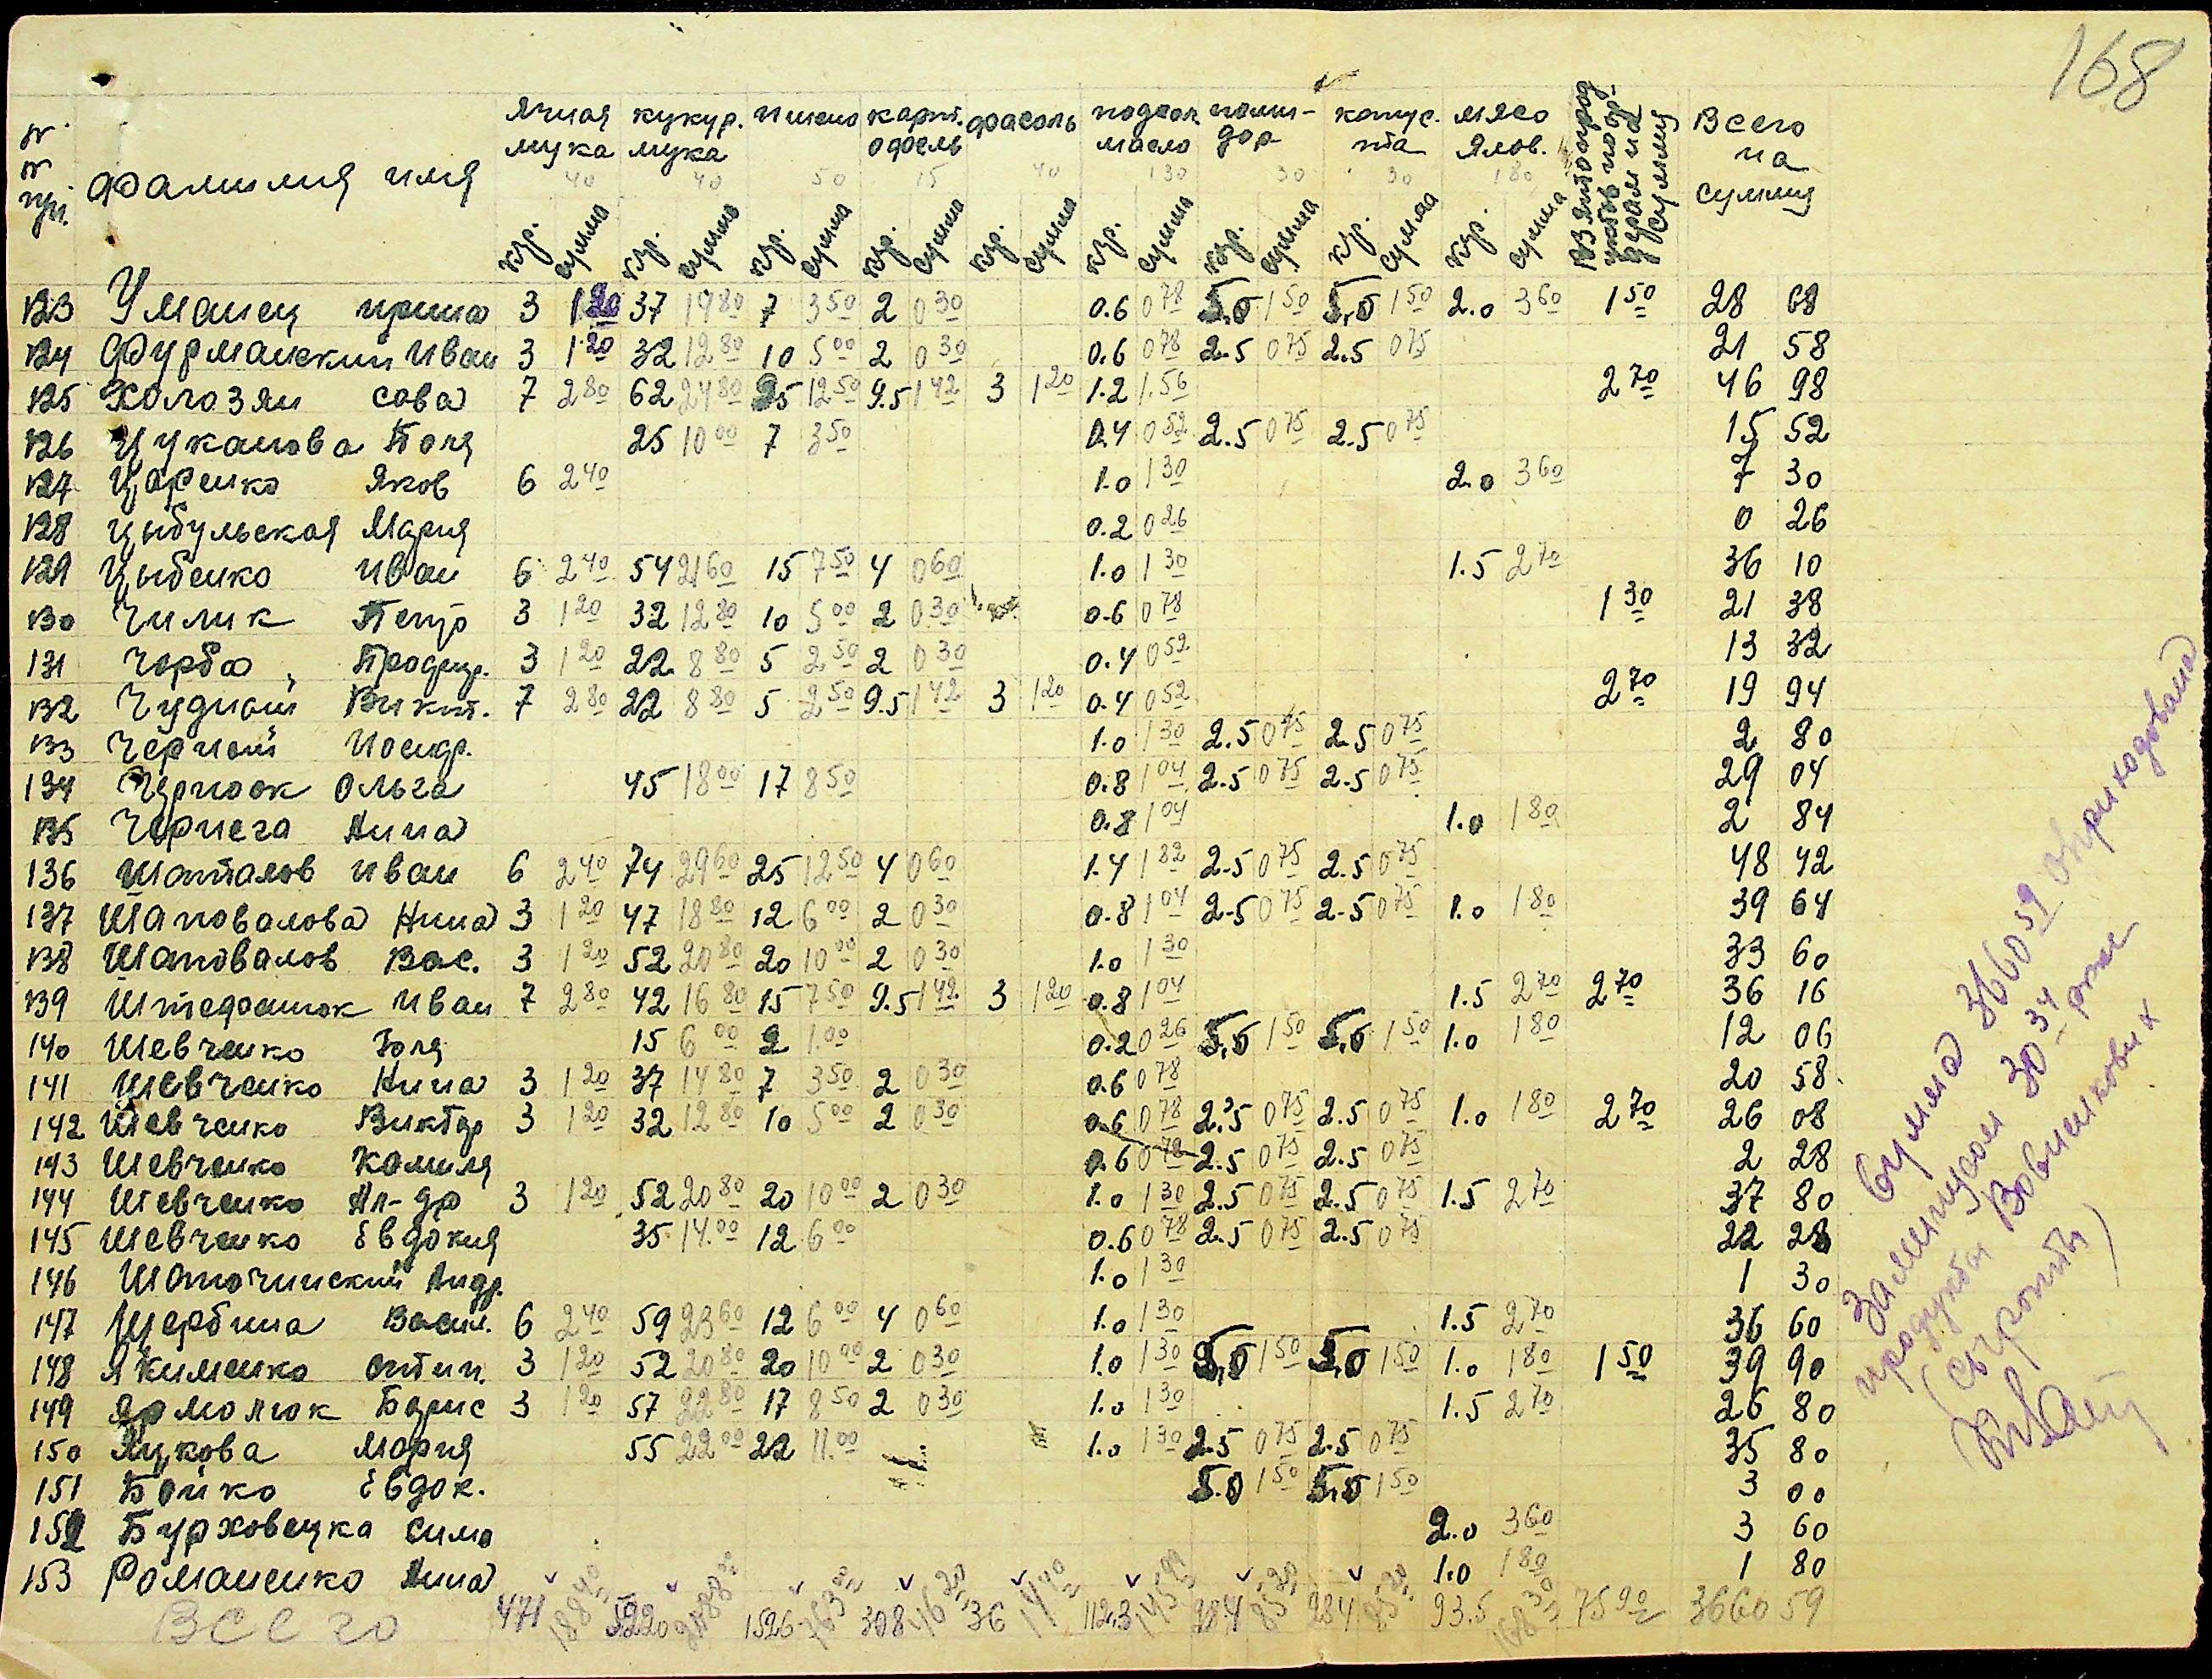 168
№ № п/п. Фамилия имя Ячная мука 40 кукур. мука 40 пшено 50 карт. офель 15 фасоль 40 подсол. масло 130 поми-дор 30 капус. та 30 мясо ялов. 180 Всего на сумму
кгр. сумма кгр. сумма кгр. сумма кгр. сумма кгр. сумма кгр. сумма кгр. сумма кгр. сумма кгр. сумма
123 Уманец ирина 3 1 20 37 14 80 7 3 50 2 0 30 0.6 0 78 5,0 1 50 5,0 1 50 2.0 3 60 1 50 28 68
124 Фурманский Иван 3 1 20 32 12 80 10 5 00 2 0 30 0.6 0 78 2.5 0 75 2.5 0 75 21 58
125 Холозян сава 7 2 80 62 24 80 25 12 50 9.5 1 42 3 1 20 1.2 1.56 2 70 46 98
126 Цуканова Поля 25 10 00 7 3 50 0.4 0 52 2.5 0 75 2.5 0 75 15 52
127 Царенко Яков 6 2 40 1.0 1 30 2.0 3 60 7 30
128 Цыбульская Мария 0.2 0 26 0 26
129 Цыбенко иван 6 2 40 54 21 60 15 7 50 4 0 60 1.0 1 30 1.5 2 70 36 10
130 Чилик Петро 3 1 20 32 12 80 10 5 00 2 0 30 0.6 0 78 1 30 21 38
131 Чорба 3 1 20 22 8 80 5 2 50 2 0 30 0.4 0 52 13 32
132 Чудной Викт. 7 2 80 22 8 80 5 2 50 9.5 1 42 3 1 20 0.4 0 52 2 70 19 94
133 Черной 1.0 1 30 2.5 0 75 2.5 0 75 2 80
134 Чернюк Ольга 45 18 00 17 8 50 0.8 1 04 2.5 0 75 2.5 0 75 29 04
135 Чернега Нина 0.8 1 04 1.0 1 80 2 84
136 Шаталов иван 6 2 40 74 29 60 25 12 50 4 0 60 1.4 1 82 2.5 0 75 2.5 0 75 48 42
137 Шаповалова Нина 3 1 20 47 18 80 12 6 00 2 0 30 0.8 1 04 2.5 0 75 2.5 0 75 1.0 1 80 39 64
138 Шаповалов Вас. 3 1 20 52 20 80 20 10 00 2 0 30 1.0 1 30 33 60
139 Штефанюк иван 7 2 80 42 16 80 15 7 50 9.5 1 42 3 1 20 0.8 1 04 1.5 2 70 2 70 36 16
140 Шевченко 15 6 00 2 1.00 0.2 0 26 5,0 1 50 5,0 1 50 1.0 1 80 12 06
141 Шевченко Нина 3 1 20 37 14 80 7 3 50 2 0 30 0.6 0 78 20 58
142 Шевченко Виктор 3 1 20 32 12 80 10 5 00 2 0 30 0.6 0 78 2.5 0 75 2.5 0 75 1.0 1 80 2 70 26 08
143 Шевченко Камиля 0.6 0 78 2.5 0 75 2.5 0 75 2 28
144 Шевченко Ал-др 3 1 20 52 20 80 20 10 00 2 0 30 1.0 1 30 2.5 0 75 2.5 0 75 1.5 2 70 37 80
145 Шевченко Евдокия 35 14.00 12 6 00 0.6 0 78 2.5 0 75 2.5 0 75 22 28
146 Андр. 1.0 1 30 1 30
147 Щербина Васил. 6 2 40 59 23 60 12 6 00 4 0 60 1.0 1 30 1.5 2 70 36 60
148 Якименко 3 1 20 52 20 80 20 10 00 2 0 30 1.0 1 30 5,0 1 50 5,0 1 50 1.0 1 80 1 50 39 90
149 Ярмолюк Борис 3 1 20 57 22 80 17 8 50 2 0 30 1.0 1 30 1.5 2 70 26 80
150 Яцкова Мария 55 22 00 22 11.00 1.0 1 30 2.5 0 75 2.5 0 75 35 80
151 Бойко Евдок. 5.0 1 50 5,0 1 50 3 00
152 Бурховецка сима 2.0 3 60 3 60
153 Романенко Анна 1.0 1 80 1 80
Всего 471 188 40 5220 2088 00 1526 763 00 308 46 20 36 14 40 112.3 145 99 284 85 20 284 85 20 93.5 168 30 75 90 3660 59
Сумма 3660 59 оприходована
30 34
продукты